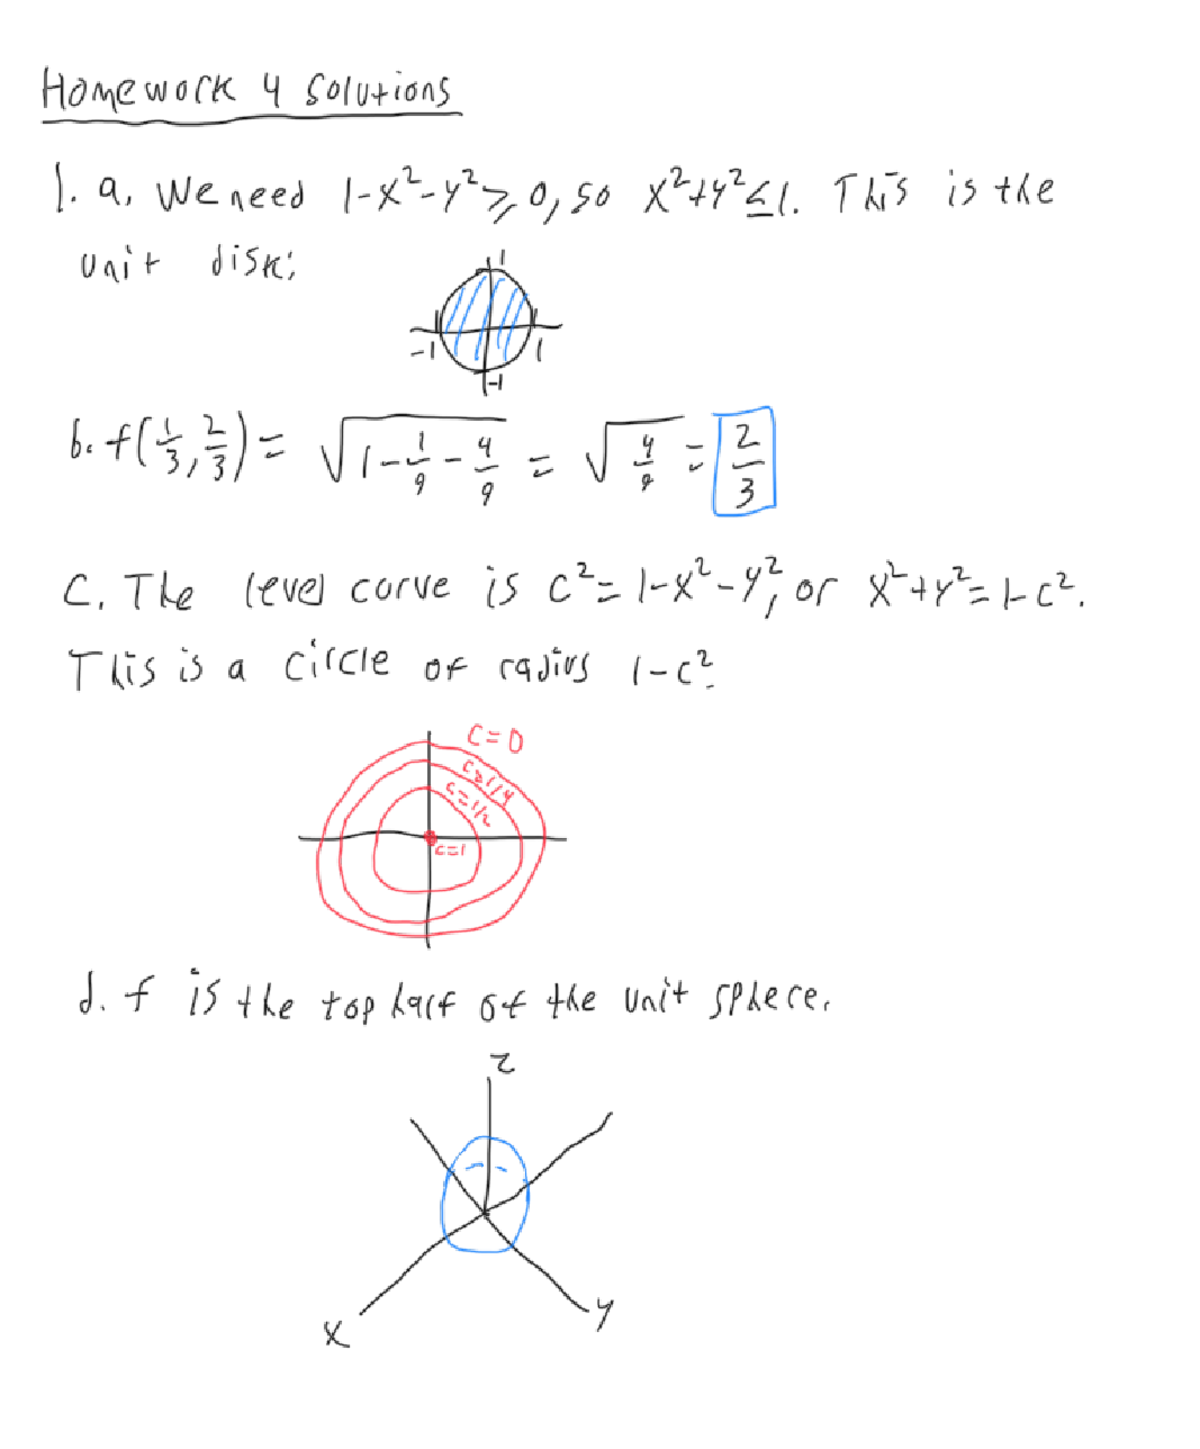 Homework 4 Solutions
1. a. We need 1-x²-y²≥0, so x²+y²≤1. This is the
unit disk:
1
-1 1
-1
b. f(1/3, 2/3) = √(1-1/9-4/9) = √(4/9) = 2/3
c. The level curve is c²=1-x²-y², or x²+y²=1-c².
This is a circle of radius 1-c².
c=0
c=1/4
c=1/2
c=1
d. f is the top half of the unit sphere.
z
y
x